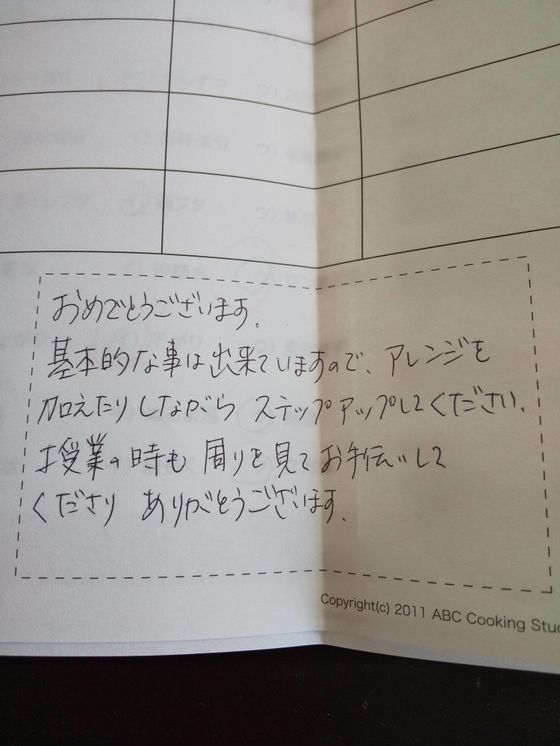 おめでとうございます。
基本的な事は出来ていますので、アレンジを
加えたりしながら ステップアップしてください。
お授業の時も 周りを見て お手伝いして
くださり ありがとうございます。
Copyright(c) 2011 ABC Cooking Stud